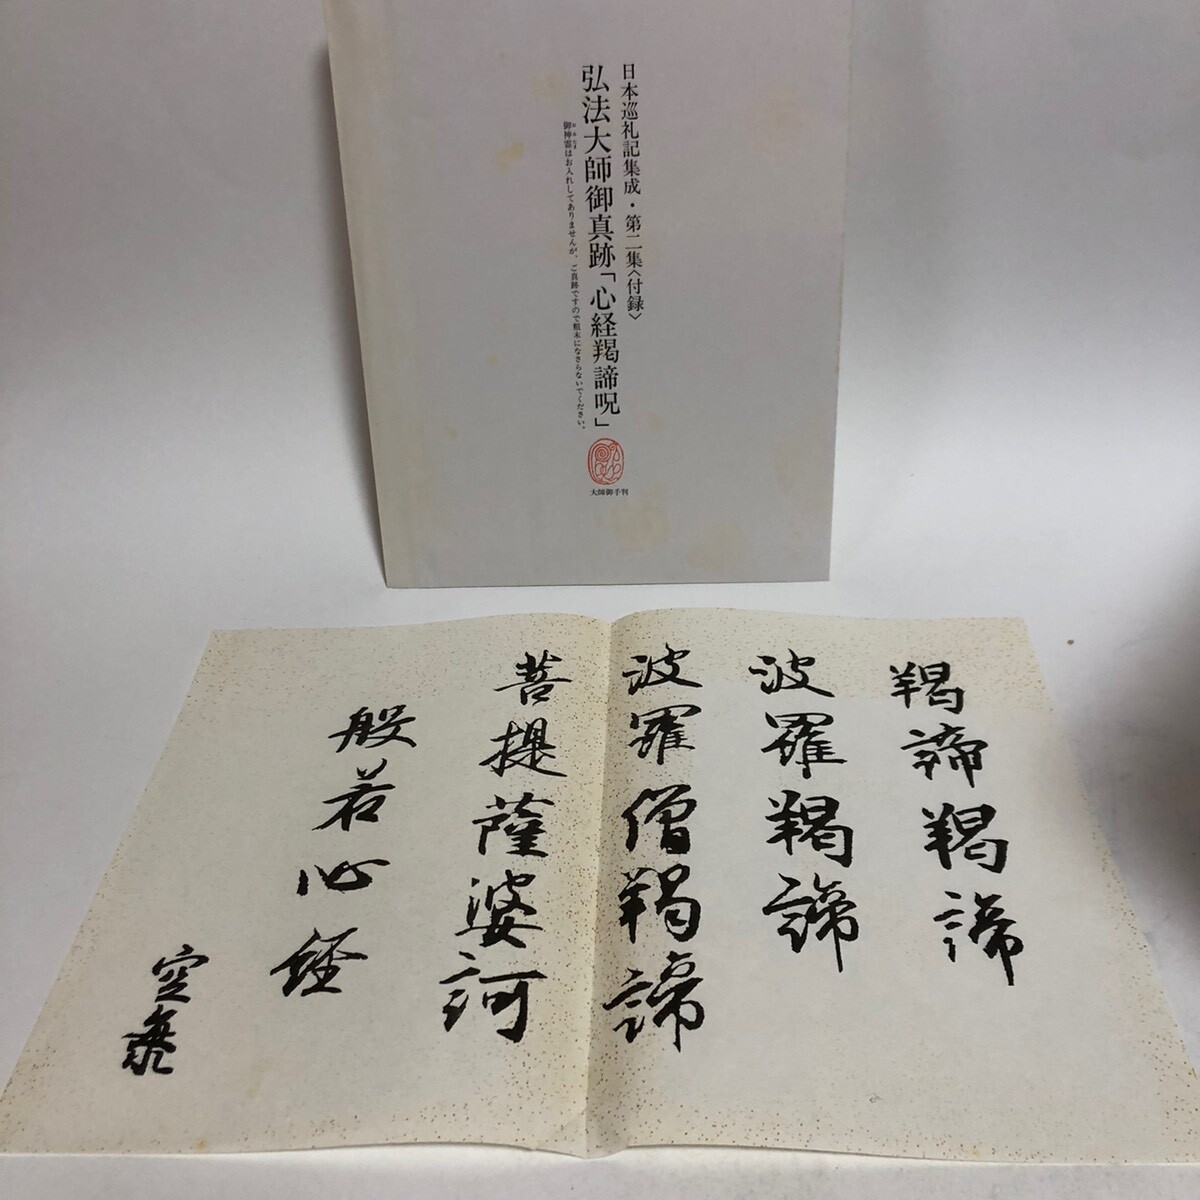 日本巡礼記集成・第二集〈付録〉
弘法大師御真跡「心経羯諦呪」
御神霊はお入れしてありませんが、ご真跡ですので粗末になさらないでください。
大師御手判
羯諦羯諦
波羅羯諦
波羅僧羯諦
菩提薩婆訶
般若心経
空